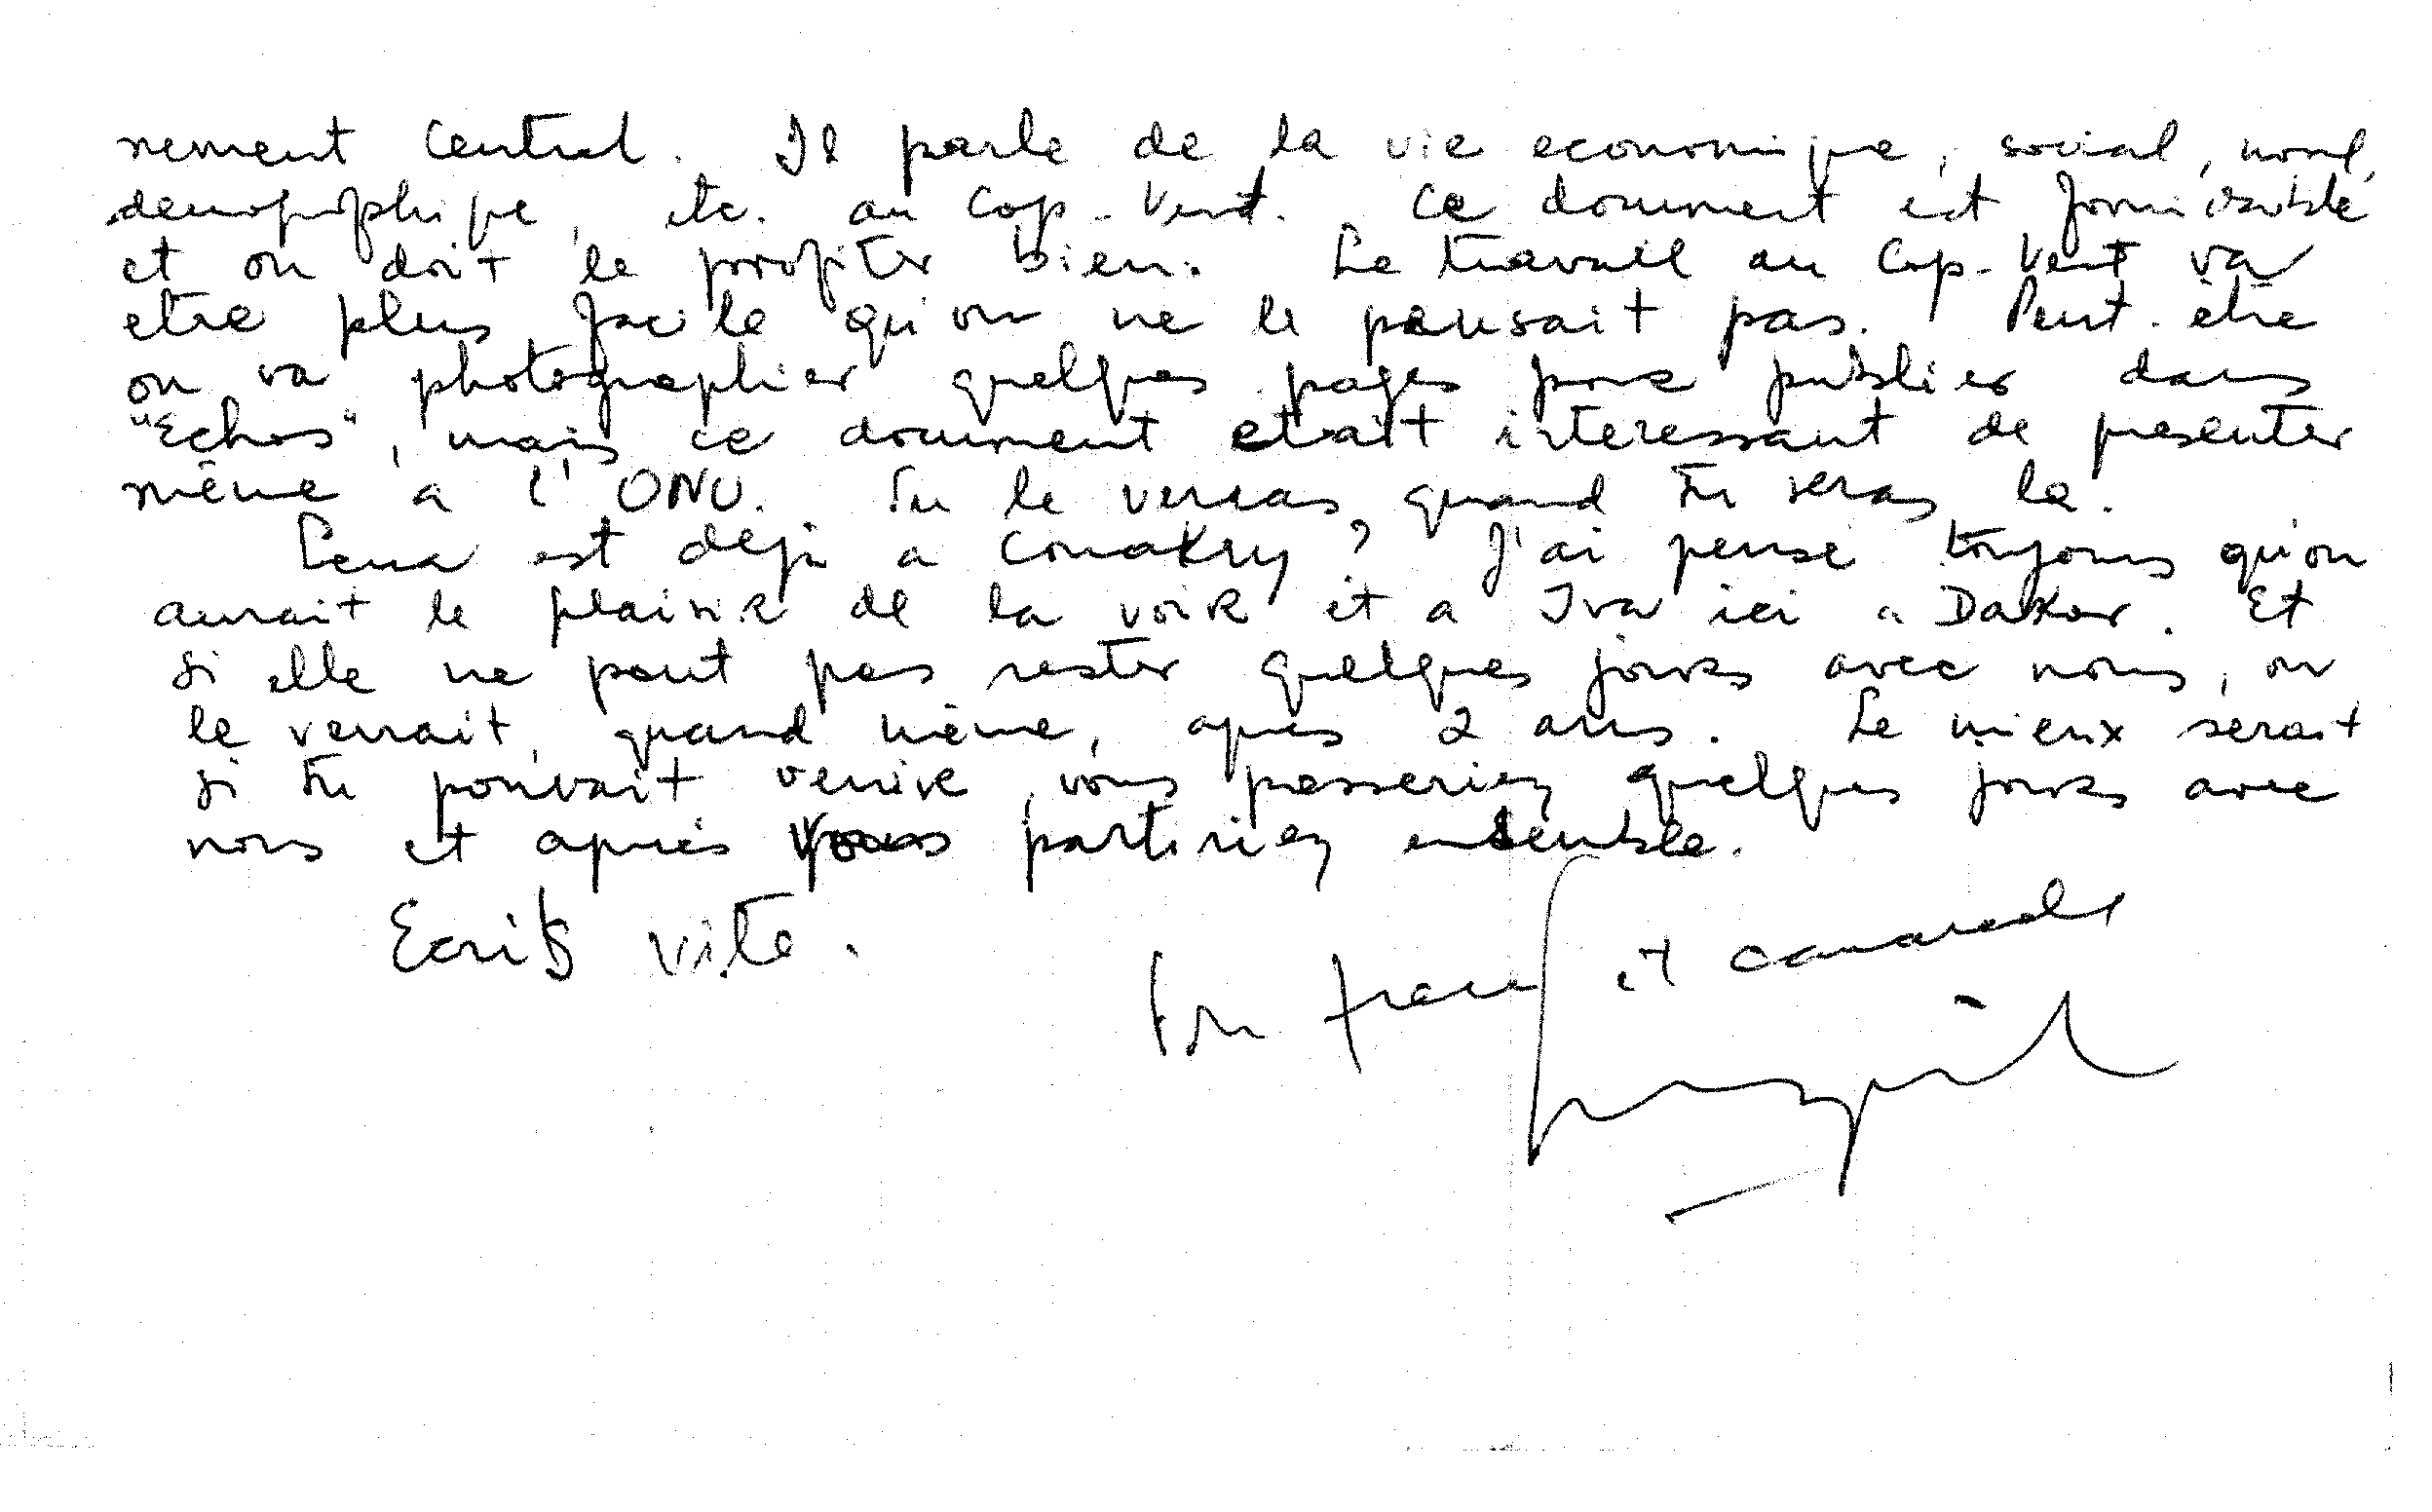 nement Central. Il parle de la vie economique, social, moral,
demographique, etc. au Cap-Vert. Ce document est formidable
et on doit le profiter bien. Le travail au Cap-Vert va
etre plus facile qu'on ne le pensait pas. Peut-être
on va photographier quelques pages pour publier dans
"Echos", mais ce document etait interessant de presenter
même a l'ONU. Tu le verras, quand tu seras la.
Lena est dejà a Conakry? J'ai pense toujours qu'on
aurait le plaisir de la voir et a Iva ici a Dakar. Et
si elle ne peut pas rester quelques jours avec nous, on
le verrait, quand même, apres 2 ans. Le mieux serait
si tu pouvait venire, vous passeriez quelques jours avec
nous et aprés vous partiriez ensemble.
Ecrits vite.
Ton frere et camarade